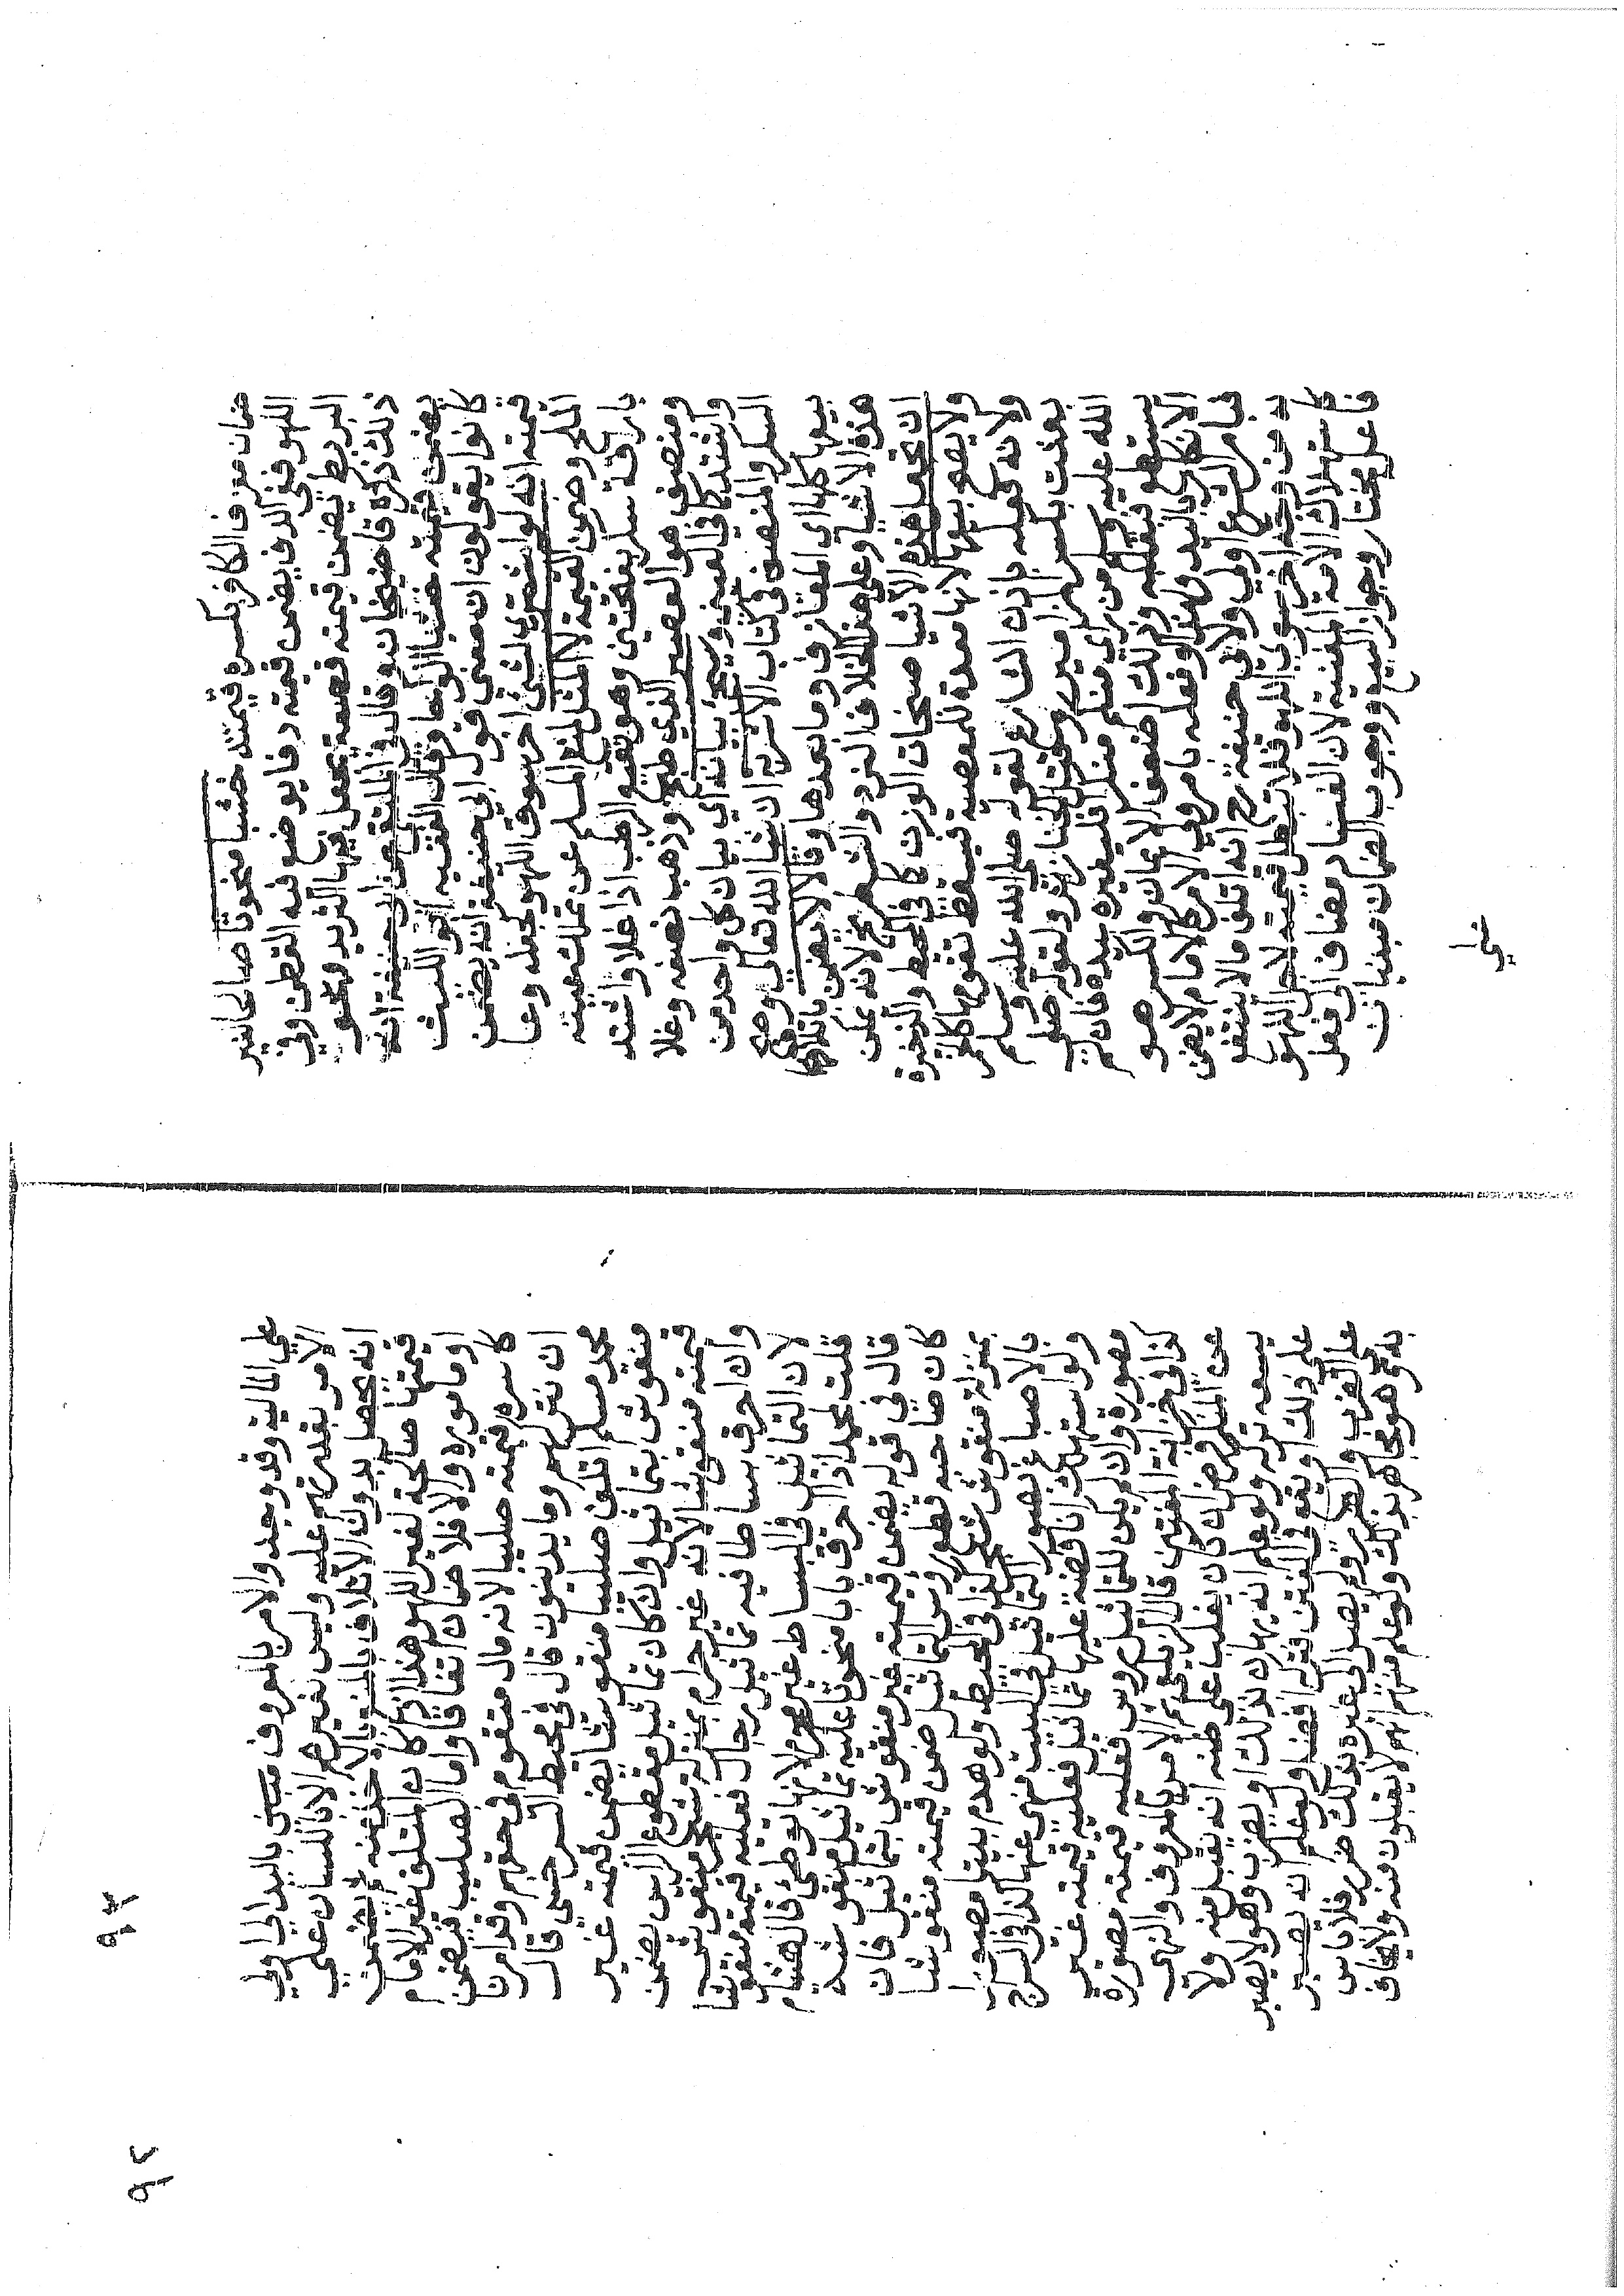 ضمان معزف الكافر بكسره قيمته خشبا منحوتا صالحا لغير
اللهو ففي الدف يضمن قيمته دفا يوضع فيه القطن وفي
البربط يضمن قيمته قصعة يجعل فيها الثريد ونحو
ذلك ذكره قاضيخان وقال في المنتقى عن ابي حنيفة انه
يضمن قيمته خشبا الواحا وقال الفقيه ابو الليث
كانوا يقولون ان معنى قول ابي حنيفة انه يضمن
قيمته انه لو اشترى لشئ اخر سوى اللهو لجعله وعا
الملح وضمن القيمة لا المثل لمنع المسلم عن تملك عينه
باراقة سكر بفتحتين وهو نقيع الرطب اذا غلا واشتد
ومنصف هو العصير الذي طبخ وذهب نصفه وغلا
واشتد كما في العيني وسيجئ بيانه اي بيان كل واحد من
السكر والمنصف في كتاب الاشربة ان شا الله تعالى وصح
بيعها كلها اي المعازف وما بعدها وقالا لا يضمن باتلافها
هذه الاشيا وعلى هذا الخلاف النرد والشطرنج لانه يمكن
ان تجعل هذه الاشيا صنجات الوزن كما في المحيط والذخيرة
ولا يصح بيعها لانها معدة للمعصية فيسقط تقومها كالخمر
ولانه فعله باذن الشارع لقوله صلى الله عليه وسلم
بعثت بكسر المزامير وقتل الخنازير ولقوله صلى
الله عليه وسلم من راى منكم منكرا فليغيره بيده فان لم
يستطع فبقلبه وذلك اضعف الايمان والكسر هو
الانكار باليد ولهذا لو فعله بامر ولي الامر كالامام لا يضمن
فبامر الشرع اولى ولابي حنيفة رح انه اتلف مالا ينتفع
به من وجه اخر سوى اللهو فلا تبطل قيمته لاجل اللهو
كاستهلاك الامة المغنية لان الفساد مضاف الى فعل
فاعل مختار وجواز البيع ووجوب الضمان مبنيان
على
٩٣
٩٢
على المالية وقد وجد والامر بالمعروف باليد الى اولي
الامر بقدرتهم عليه وليس لغيرهم الا باللسان على
انه يحصل بدون الاتلاف بالمنع بالاخذ منه ثم يضمن
قيمتها صالحة لغير اللهو هذا ان كان المتلف غير الامام
او ماموره والا فلا ضمان اتفاقا واما الصليب فيضمن
كاسره قيمته صليبا لانه مال متقوم في حقهم وقد امرنا
ان نتركهم وما يدينون قال في محيط السرخسي قال
محمد مسلم اتلف صليبا منقوشا يضمن قيمته غير
منقوش بتماثيل وان كان تماثيل مقطوع الراس يضمن
قيمته منقوشا لانه غير حرام بمنزلة شجر منقوش
وان احرق بساطا فيه تماثيل رجال فعليه قيمته منقوشا
لان التماثيل في البساط غير محرم لانها توطئ قال هشام
قلت لمحمد اذا احرق بابا منحوتا عليه تماثيل منقوشة
قال في قوله يضمن قيمته غير منقوش بتماثيل فان
كان صاحبه قطع رؤس التماثيل ضمن قيمته منقوشا
بمنزلة منقوش شجر كذا في المحيط ولو هدم بيتا مصورا
بالاصباغ تصوير التماثيل في البيت منهي عنها كذا في السراج
ولو استهلك انا فضة عليها تماثيل فعليه قيمته غير
مصورة وان لم يكن للتماثيل روس فعليه قيمته مصورة
كذا في خزانة المفتين قال الزيلعي ثم الامر بالمعروف والنهي
عن المنكر فرض ان كان يغلب على ظنه انه يقبل منه ولا
يسعه تركه ولو علم انه يهان بذلك او يضرب وهو لا يصبر
على ذلك او يقع الفتن فتركه افضل ولو علم انه يصبر
على الضرب والضرر ولم يصل الى غيره بذلك ضرر فلا باس
به بل هو مجاهد بذلك ولو علم منهم انهم لا يقبلون منه ولا يخاف